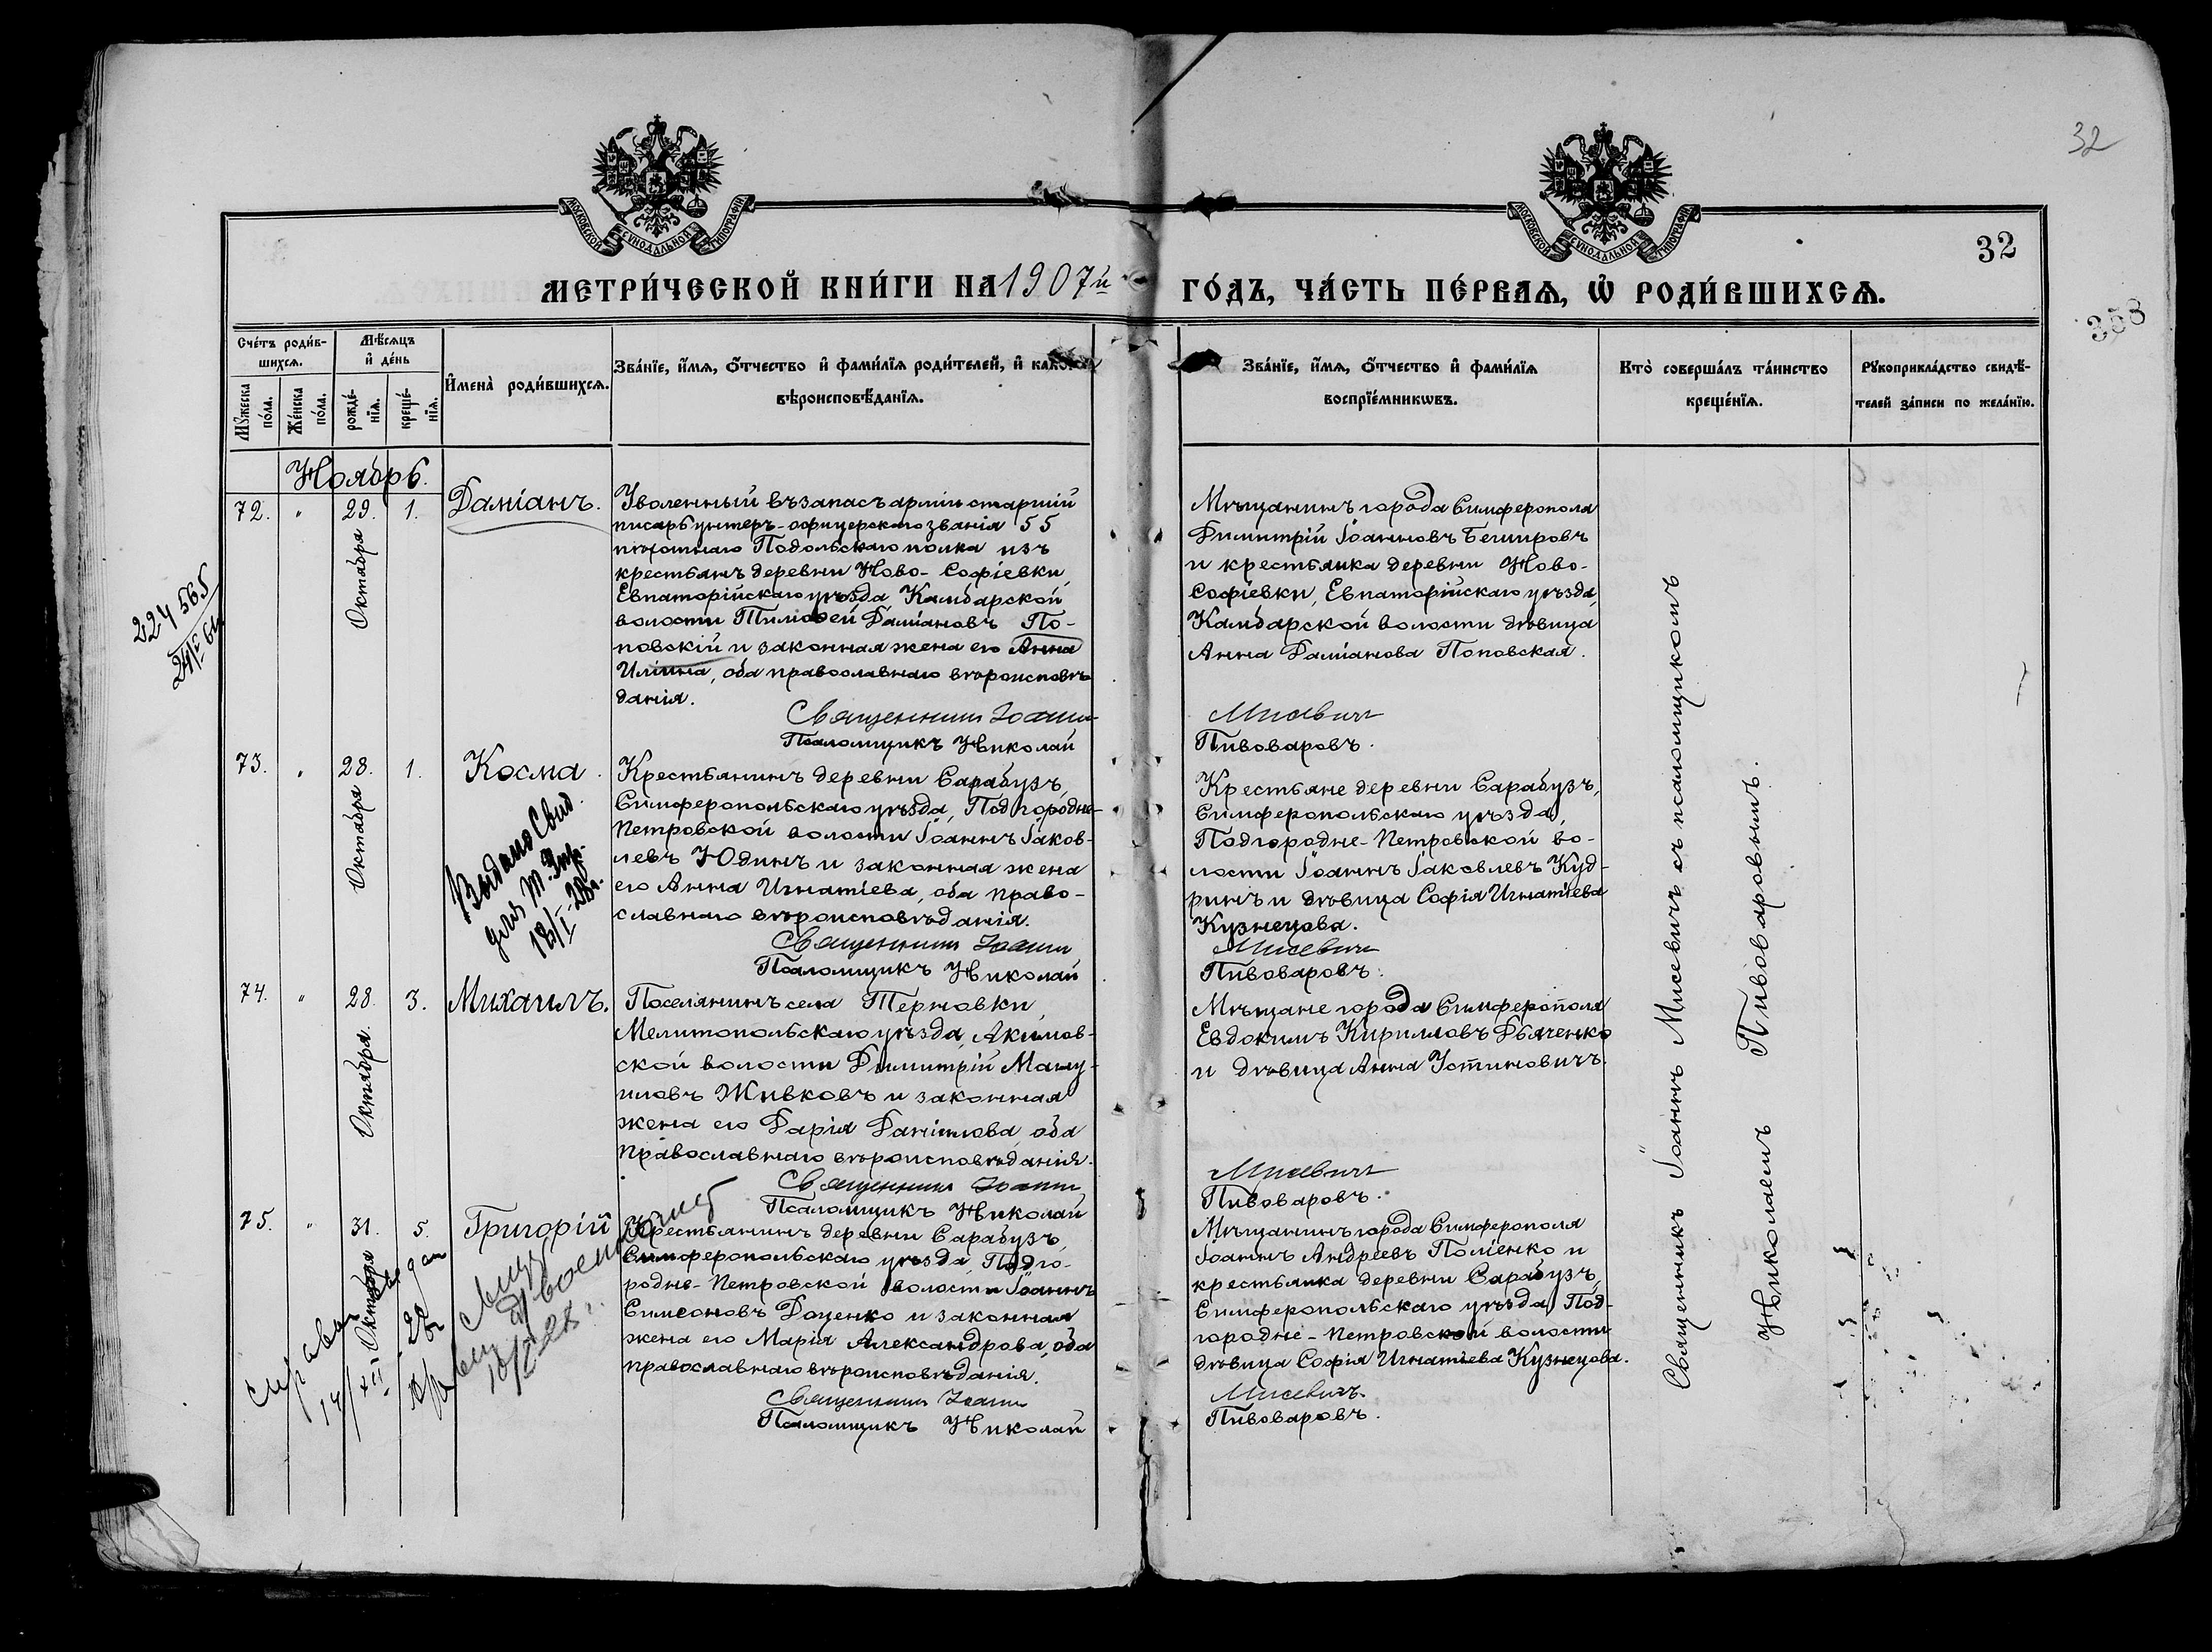 32
МОСКОВСКОЙ СѴНОДАЛЬНОЙ ТИПОГРАФІИ
МОСКОВСКОЙ СѴНОДАЛЬНОЙ ТИПОГРАФІИ
32
МЕТРИ́ЧЕСКОЙ КНИ́ГИ НА 1907й ГО́ДЪ, ЧА́СТЬ ПЕ́РВАѦ, Ѡ РОДИ́ВШИХСѦ.
358
Сче́тъ роди́в-
шихсѧ.
Мꙋ́жеска
по́ла.
Же́нска
по́ла.
Мѣ́сѧцъ
и҆ де́нь
рожде́-
нїѧ.
креще́-
нїѧ.
И҆мена̀ роди́вшихсѧ.
Зва́нїе, и҆́мѧ, ѻ҆́тчество и҆ фами́лїѧ роди́телей, и҆ како́гѡ
вѣроисповѣ́данїѧ.
Зва́нїе, и҆́мѧ, ѻ҆́тчество и҆ фами́лїѧ
воспрїе́мникѡвъ.
Кто̀ соверша́лъ та́инство
креще́нїѧ.
Рꙋкоприкла́дство свидѣ́-
телей за́писи по жела́нїю.
Ноябрь.
72. " 29. 1.
Октября
Даміанъ.
Уволенный въ запасъ арміи старшій
писарь унтеръ-офицерскаго званія 55
пѣхотнаго Подольскаго полка изъ
крестьянъ деревни Ново-Софіевки,
Евпаторійскаго уѣзда, Камбарской
волости Тимоѳей Даміановъ По-
повскій и законная жена его Анна
Ильина, оба православнаго вѣроисповѣ-
данія.
Священникъ Іоаннъ
Псаломщикъ Николай
Мѣщанинъ города Симферополя
Димитрій Іоанновъ Бешировъ
и крестьянка деревни Ново-
Софіевки, Евпаторійскаго уѣзда,
Камбарской волости дѣвица
Анна Даміанова Поповская.
Мисевичъ
Пивоваровъ.
224565
24/I 64
73. " 28. 1.
Октября
Косма.
Выдано Свид.
18/I-28г.
Крестьянинъ деревни Сарабузъ,
Симферопольскаго уѣзда, Подгородне-
Петровской волости Іоаннъ Іаков-
левъ Юдинъ и законная жена
его Анна Игнатіева, оба право-
славнаго вѣроисповѣданія.
Священникъ Іоаннъ
Псаломщикъ Николай
Крестьяне деревни Сарабузъ,
Симферопольскаго уѣзда,
Подгородне-Петровской во-
лости Іоаннъ Іаковлевъ Куд-
ринъ и дѣвица Софія Игнатіева
Кузнецова.
Мисевичъ
Пивоваровъ.
74. " 28. 3.
Октября
Михаилъ.
Поселянинъ села Терновки,
Мелитопольскаго уѣзда, Акимов-
ской волости Димитрій Ману-
иловъ Живковъ и законная
жена его Дарія Даніилова, оба
православнаго вѣроисповѣданія.
Священникъ Іоаннъ
Псаломщикъ Николай
Мѣщане города Симферополя
Евдокимъ Кирилловъ Дьяченко
и дѣвица Анна Устиновичъ.
Мисевичъ
Пивоваровъ.
75. " 31. 5.
Октября
Григорій
Крестьянинъ деревни Сарабузъ,
Симферопольскаго уѣзда, Подго-
родне-Петровской волости Іоаннъ
Симеоновъ Доценко и законная
жена его Марія Александрова, оба
православнаго вѣроисповѣданія.
Священникъ Іоаннъ
Псаломщикъ Николай
Мѣщанинъ города Симферополя
Іоаннъ Андреевъ Поліенко и
крестьянка деревни Сарабузъ,
Симферопольскаго уѣзда, Под-
городне-Петровской волости
дѣвица Софія Игнатіева Кузнецова.
Мисевичъ
Пивоваровъ.
Священникъ Іоаннъ Мисевичъ съ псаломщикомъ
Николаемъ Пивоваровымъ.